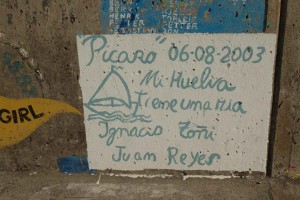 "Picaro" 06-08-2003
Mi Huelva
tiene una ria
Ignacio Toñi
Juan Reyes
GIRL